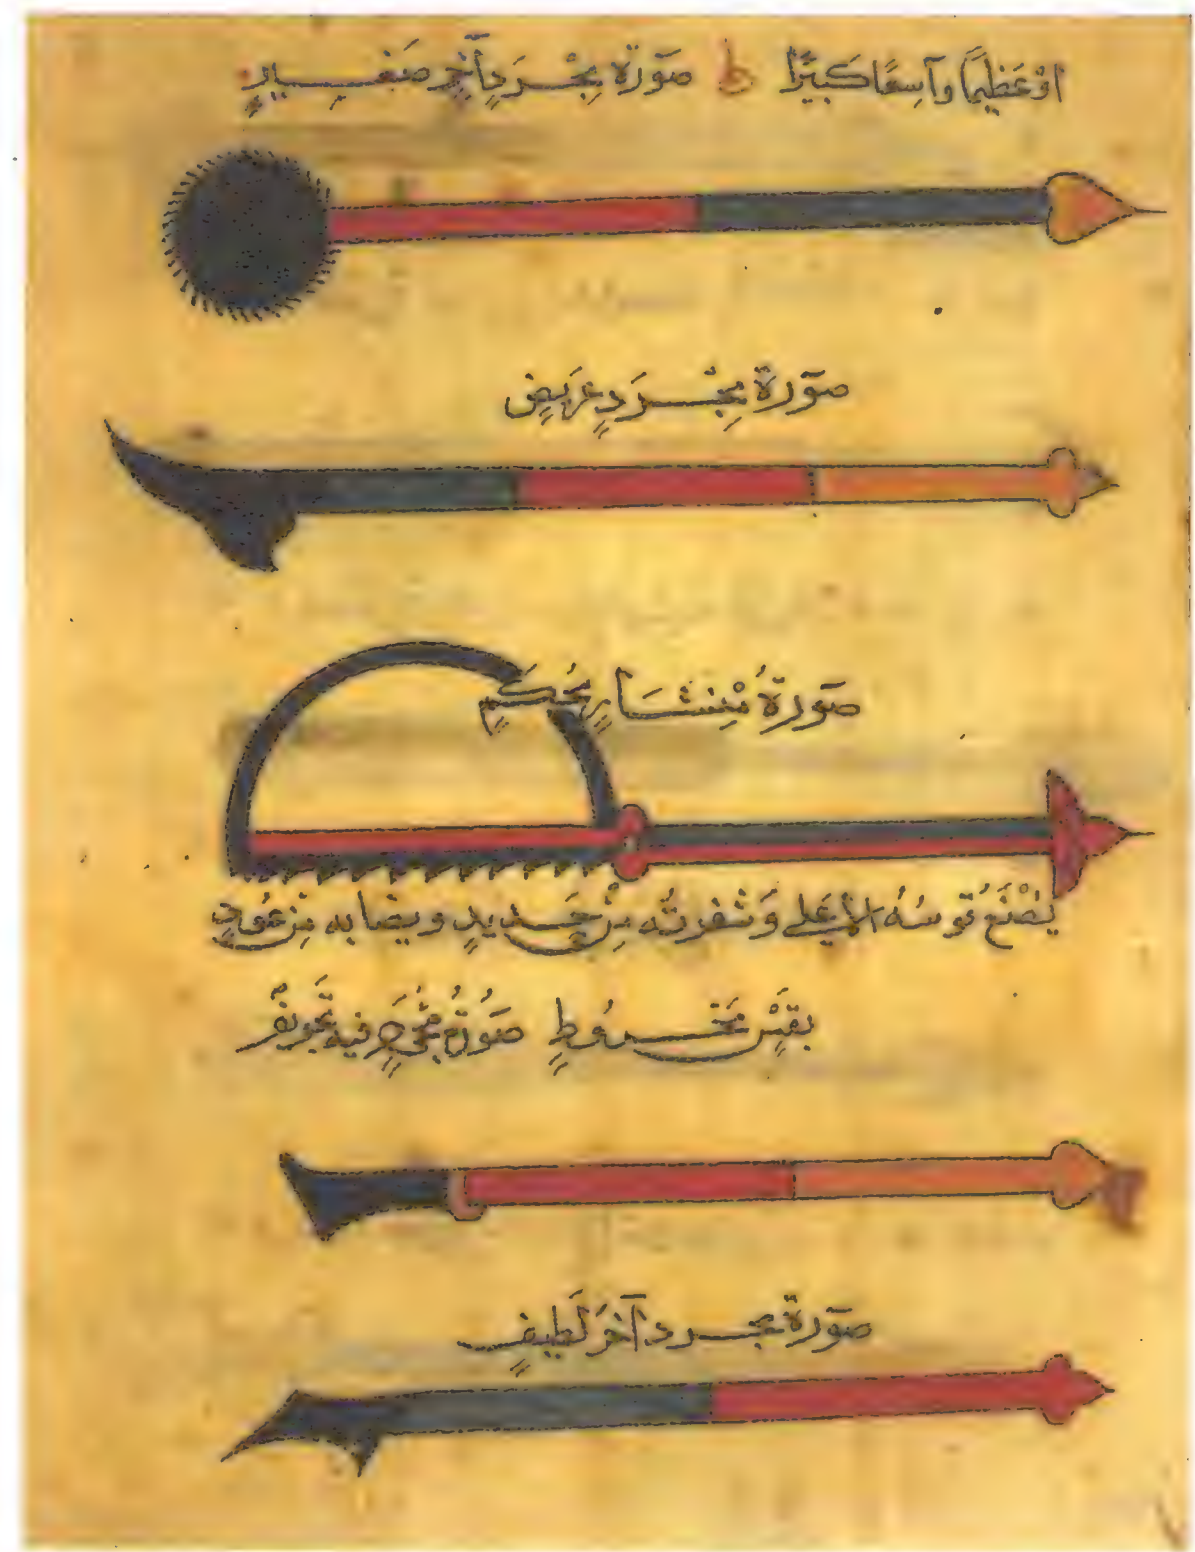 اوْ عَظِيمًا وآسِعًا كَبيرًا ط صوَرة مِجْرَدٍ آخِرِ صَغِيرٍ
صوَرة مِجْرَدٍ عَرِيضٍ
صوَرةُ مِنْشَارٍ مُحْكَمٍ
يُصْنَعُ قوسُهُ الاعَلى وَشفرتُه مِنْ حَديدٍ ونصابه مِن عُودِ
بقسٍ مَخروُطٍ صوُرةُ مجردٍ فيه تَجويفٌ
صوَرة مجرد آخرَ لَطيفٍ